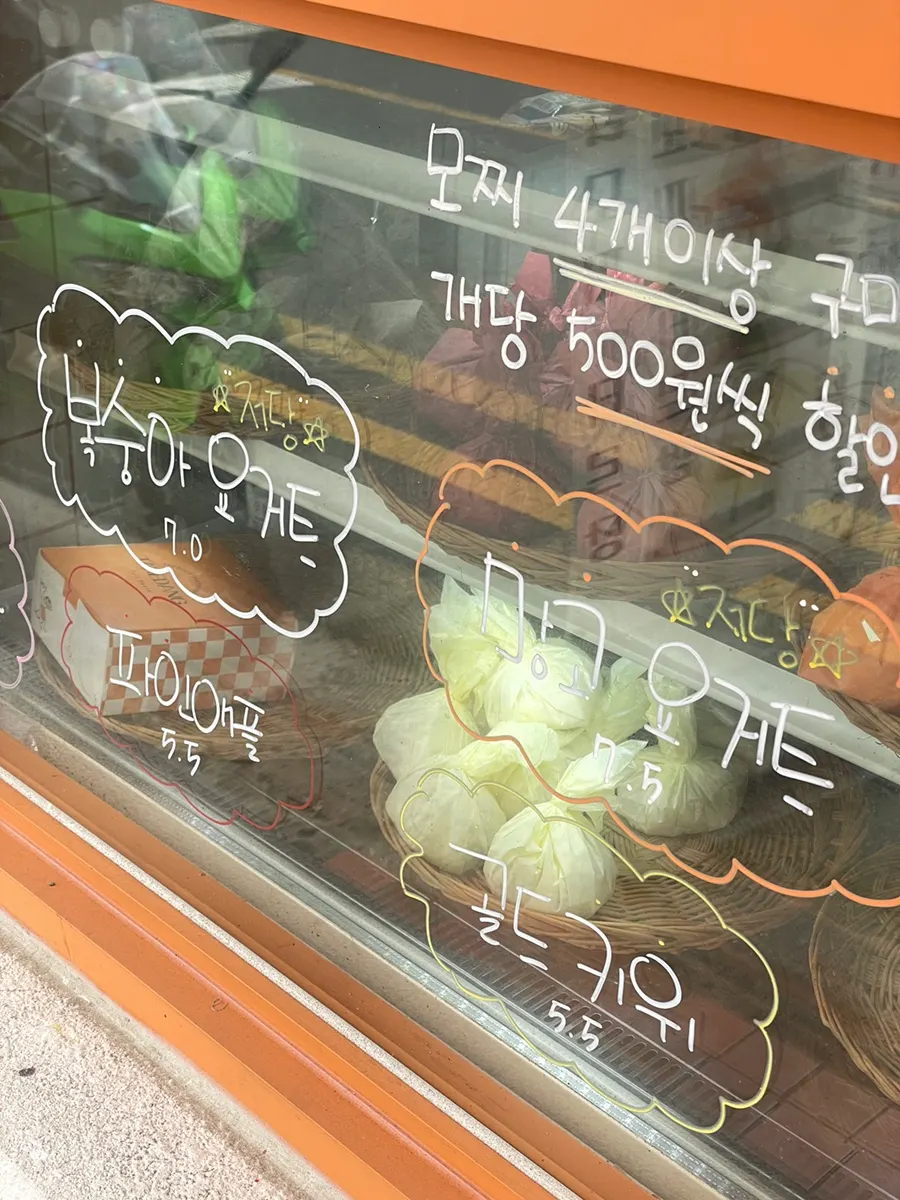 모찌 4개이상 구매
개당 500원씩 할인
☆저당☆
복숭아 요거트
7.0
파인애플
5.5
☆저당☆
망고 요거트
7.5
골드키위
5.5